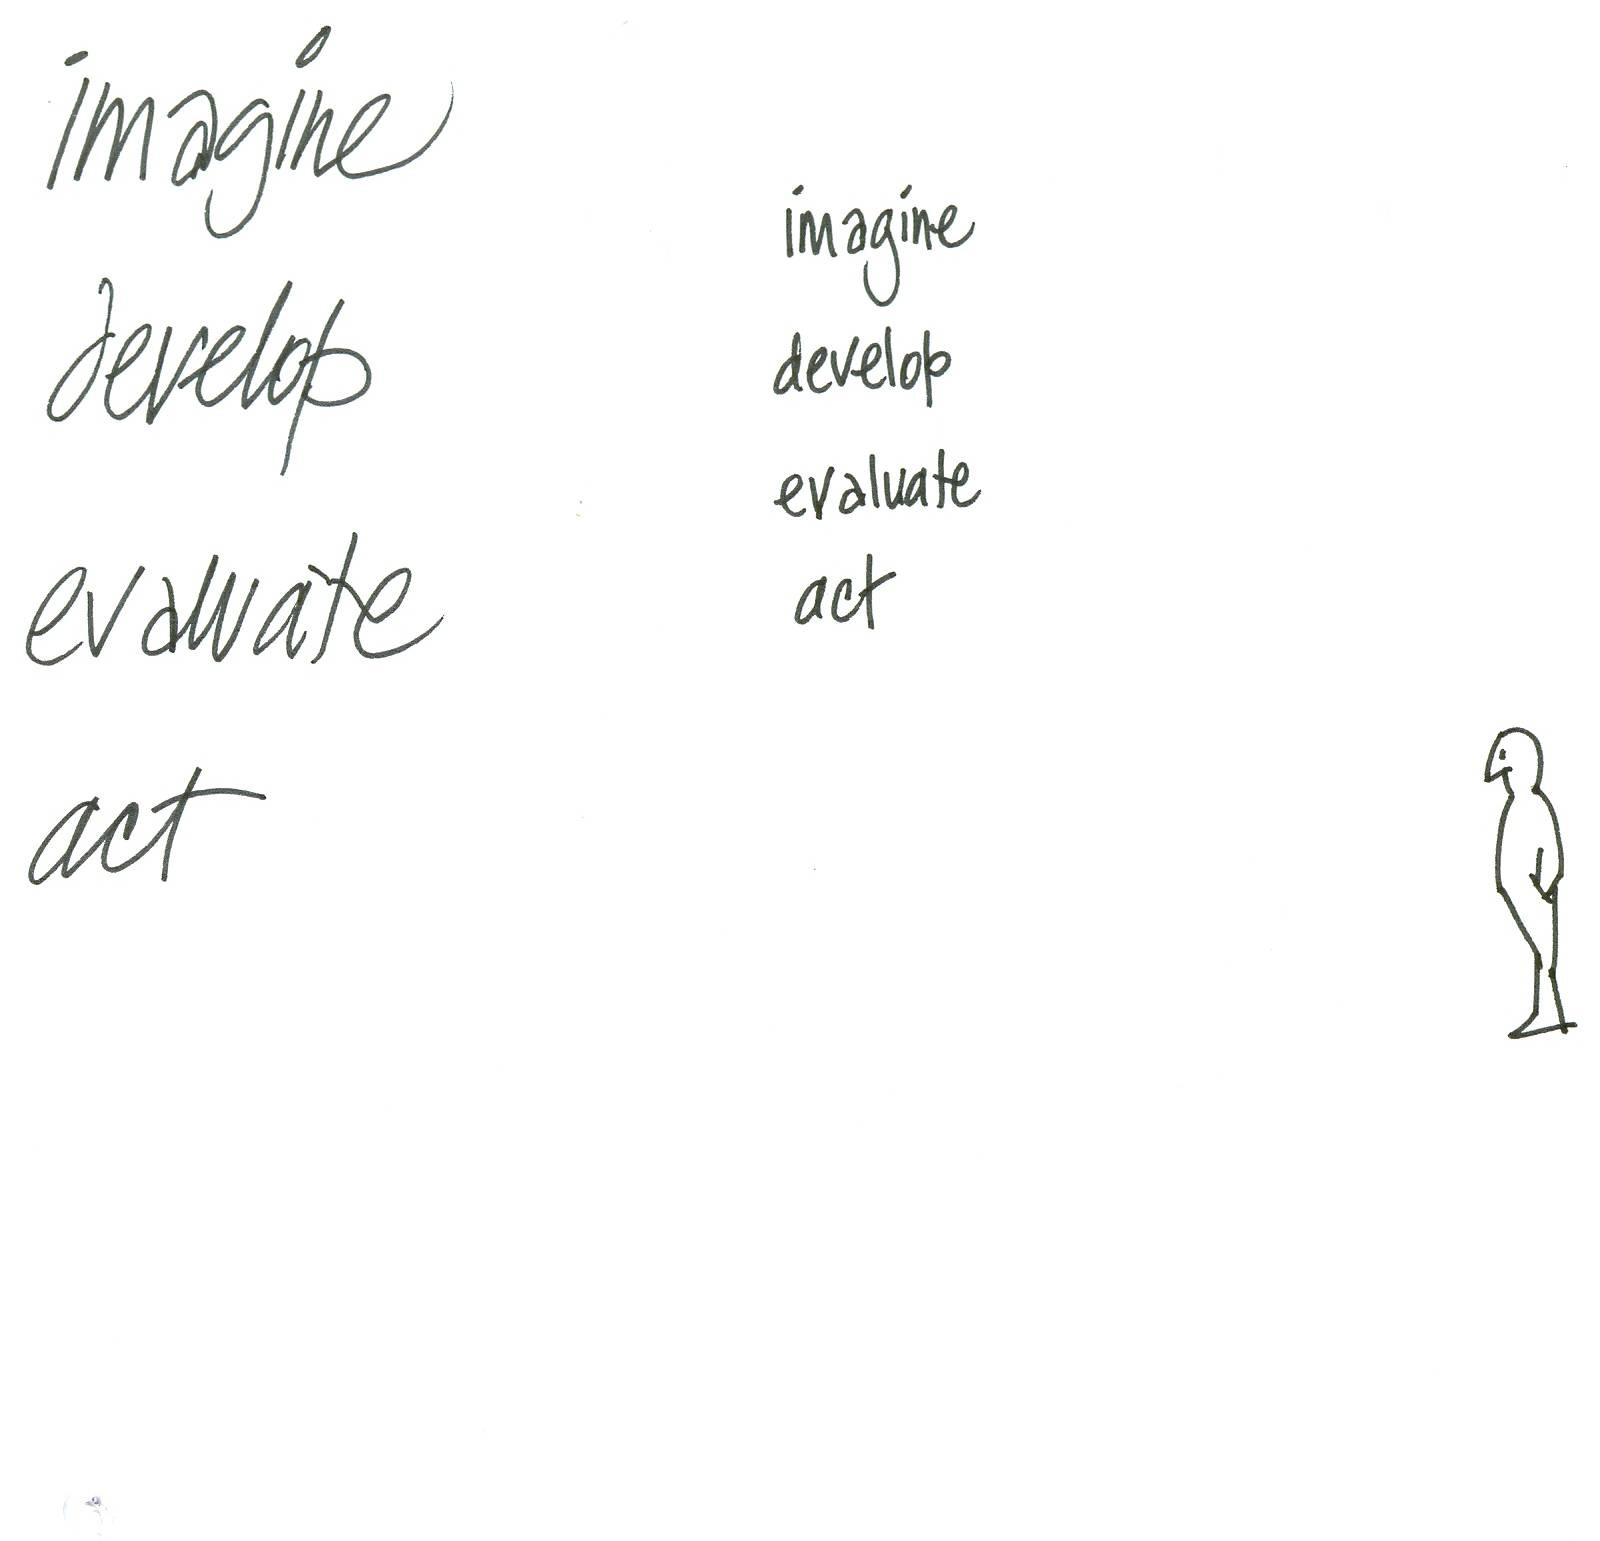 imagine
develop
evaluate
act
imagine
develop
evaluate
act